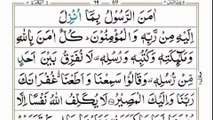 اٰمَنَ الرَّسُوْلُ بِمَاۤ اُنْزِلَ
اِلَيْهِ مِنْ رَّبِّهٖ وَالْمُؤْمِنُوْنَ ؕ كُلٌّ اٰمَنَ بِاللّٰهِ
وَمَلٰٓئِكَتِهٖ وَكُتُبِهٖ وَرُسُلِهٖ لَا نُفَرِّقُ بَيْنَ اَحَدٍ
مِّنْ رُّسُلِهٖ وَقَالُوْا سَمِعْنَا وَاَطَعْنَا غُفْرَانَكَ
رَبَّنَا وَاِلَيْكَ الْمَصِيْرُ لَا يُكَلِّفُ اللّٰهُ نَفْسًا اِلَّا